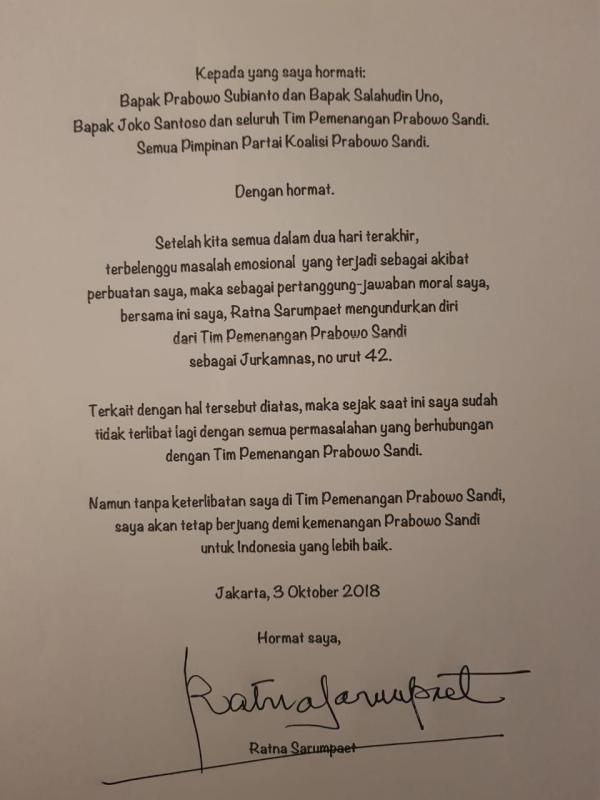 Kepada yang saya hormati:
Bapak Prabowo Subianto dan Bapak Salahudin Uno,
Bapak Joko Santoso dan seluruh Tim Pemenangan Prabowo Sandi.
Semua Pimpinan Partai Koalisi Prabowo Sandi.
Dengan hormat.
Setelah kita semua dalam dua hari terakhir,
terbelenggu masalah emosional yang terjadi sebagai akibat
perbuatan saya, maka sebagai pertanggung-jawaban moral saya,
bersama ini saya, Ratna Sarumpaet mengundurkan diri
dari Tim Pemenangan Prabowo Sandi
sebagai Jurkamnas, no urut 42.
Terkait dengan hal tersebut diatas, maka sejak saat ini saya sudah
tidak terlibat lagi dengan semua permasalahan yang berhubungan
dengan Tim Pemenangan Prabowo Sandi.
Namun tanpa keterlibatan saya di Tim Pemenangan Prabowo Sandi,
saya akan tetap berjuang demi kemenangan Prabowo Sandi
untuk Indonesia yang lebih baik.
Jakarta, 3 Oktober 2018
Hormat saya,
RatnaSarumpaet
Ratna Sarumpaet